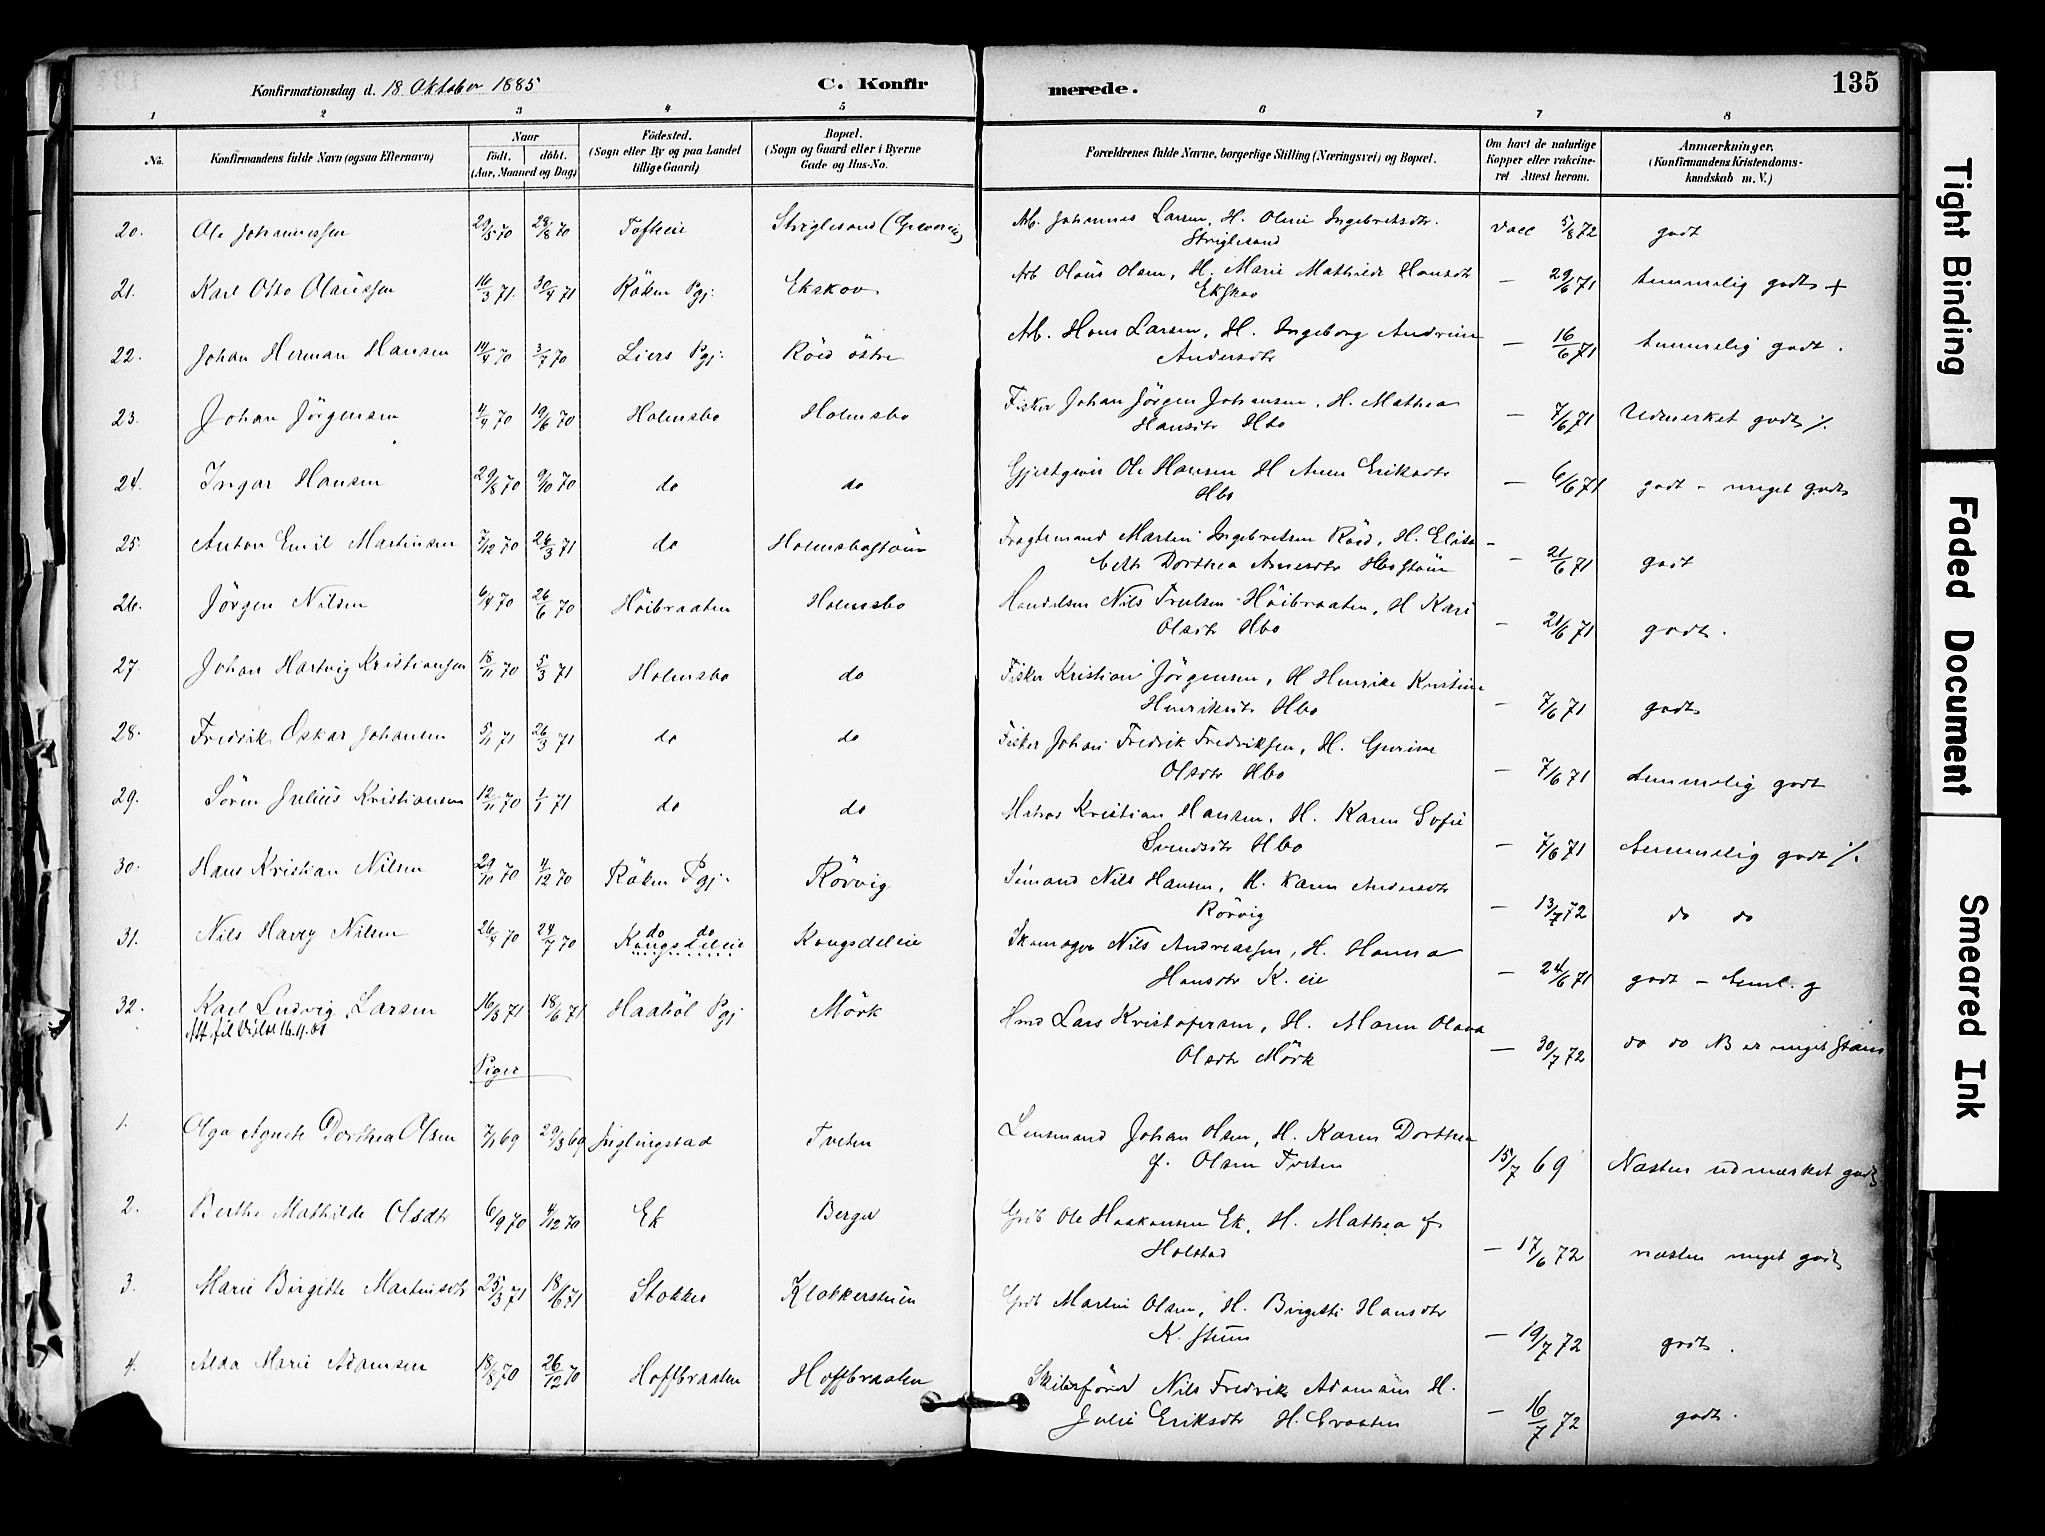 Konfirmationsdag d. 18 Oktober 1885 C. Konfirmerede. 135
1 2 3 4 5 6 7 8
No. Konfirmandens fulde Navn (ogsaa Efternavn) Naar født. døbt. (Aar, Maaned og Dag) Fødested. (Sogn eller By og paa Landet tillige Gaard) Bopæl. (Sogn og Gaard eller i Byerne Gade og Hus-No. Forældrenes fulde Navne, borgerlige Stilling (Næringsvei) og Bopæl. Om havt de naturlige Kopper eller vakcineret Attest herom. Anmærkninger. (Konfirmandens Kristendomskundskab m. V.)
20. Ole Johannessen 29/5 70 28/8 70 Tofteeie Striglesund Arb. Johannes Larsen, H. Oline Ingebretsdtr. vacc 5/8 72 godt
Striglesund
21. Karl Otto Olaussen 16/3 71. 30/4 71 Röken Pgj. Ekskov Arb Olaus Olsen, H. Marie Mathilde Hansdtr — 29/6 71 temmelig godt +
Ekskov
22. Johan Herman Hansen 14/4 70 3/7 70 Liers Pgj. Röed östre Arb. Hans Larsen, H. Ingeborg Andrine — 16/6 71 temmelig godt.
Andersdtr
23. Johan Jörgensen 4/4 70 19/6 70 Holmsbo Holmsbo Fisker Johan Jörgen Johansen, H. Mathea — 7/6 71 Udmerket godt ⁒
Hansdtr Hbo
24. Ingar Hansen 29/8 70 9/10 70 do do Gjestgiver Ole Hansen H Anne Eriksdtr — 6/6 71 godt - meget godt
Hbo
25. Anton Emil Martinsen 7/12 70 26/3 71 do Holmsbostöen Fragtemand Martin Ingebretsen Röed, H. Elisa- — 21/6 71 godt
beth Dorthea Hbostöen
26. Jörgen Nilsen 6/4 70 26/6 70 Höibraaten Holmsbo Handelsm Nils Trulsen Höibraaten, H Kari — 21/6 71 godt.
Olsdtr Hbo
27. Johan Hartvig Kristiansen 18/11 70 5/3 71 Holmsbo do Fisker Kristian Jörgensen, H Henrike Kristine — 7/6 71 godt
Henriksdtr Hbo
28. Fredrik Oskar Johansen 5/1 71 26/3 71 do do Fisker Johan Fredrik Fredriksen, H. Gurine — 7/6 71 temmelig godt
Olsdtr Hbo
29. Sören Julius Kristiansen 12/11 70 1/1 71 do do Matros Kristian Hansen, H. Karen Sofie — 7/6 71 temmelig godt ⁒
Svendsdtr Hbo
30. Hans Kristian Nilsen 29/10 70 4/12 70 Röken Pgj. Rörvig Sömand Nils Hansen, H. Karen Andersdtr — 13/7 72 do do
Rörvig
31. Nils Nilsen 26/4 70 24/7 70 do do Kongsdeleie Kongsdeleie Skomager Nils Andreassen, H. Hanna — 24/6 71 godt - teml. g
Hansdtr K. eie
32. Karl Ludvig Larsen 16/3 71 18/6 71 Haaböl Pgj Mörk Lars Kristofersen, H. Maren Olava — 30/7 72 do do NB er meget
Olsdtr Mörk
Piger
1. Olga Agnete Dorthea Olsen 7/1 69 29/3 69 Juglingstad Tveten Lensmand Johan Olsen, H. Karen Dorthea 15/7 69 Næsten udmærket godt
f. Olsen Tveten
2. Berthe Mathilde Olsdtr 6/9 70 4/12 70 Ek Berger Grdb Ole Haakonsen Ek, H. Mathea f — 17/6 72 næsten meget godt
Holstad
3. Marie Birgitte Martinsdtr 25/3 71 18/6 71 Stokker Klokkerstuen Grdb Martin Olsen, H. Birgitte Hansdtr — 19/7 72 godt.
K. stuen
4. Alda Marie Adamsen 18/8 70 26/12 70 Hoffbraaten Hoffbraaten Skibsförer Nils Fredrik Adamsen H. — 16/7 72 godt.
Julie Eriksdtr H. braaten
Tight Binding
Faded Document
Smeared Ink